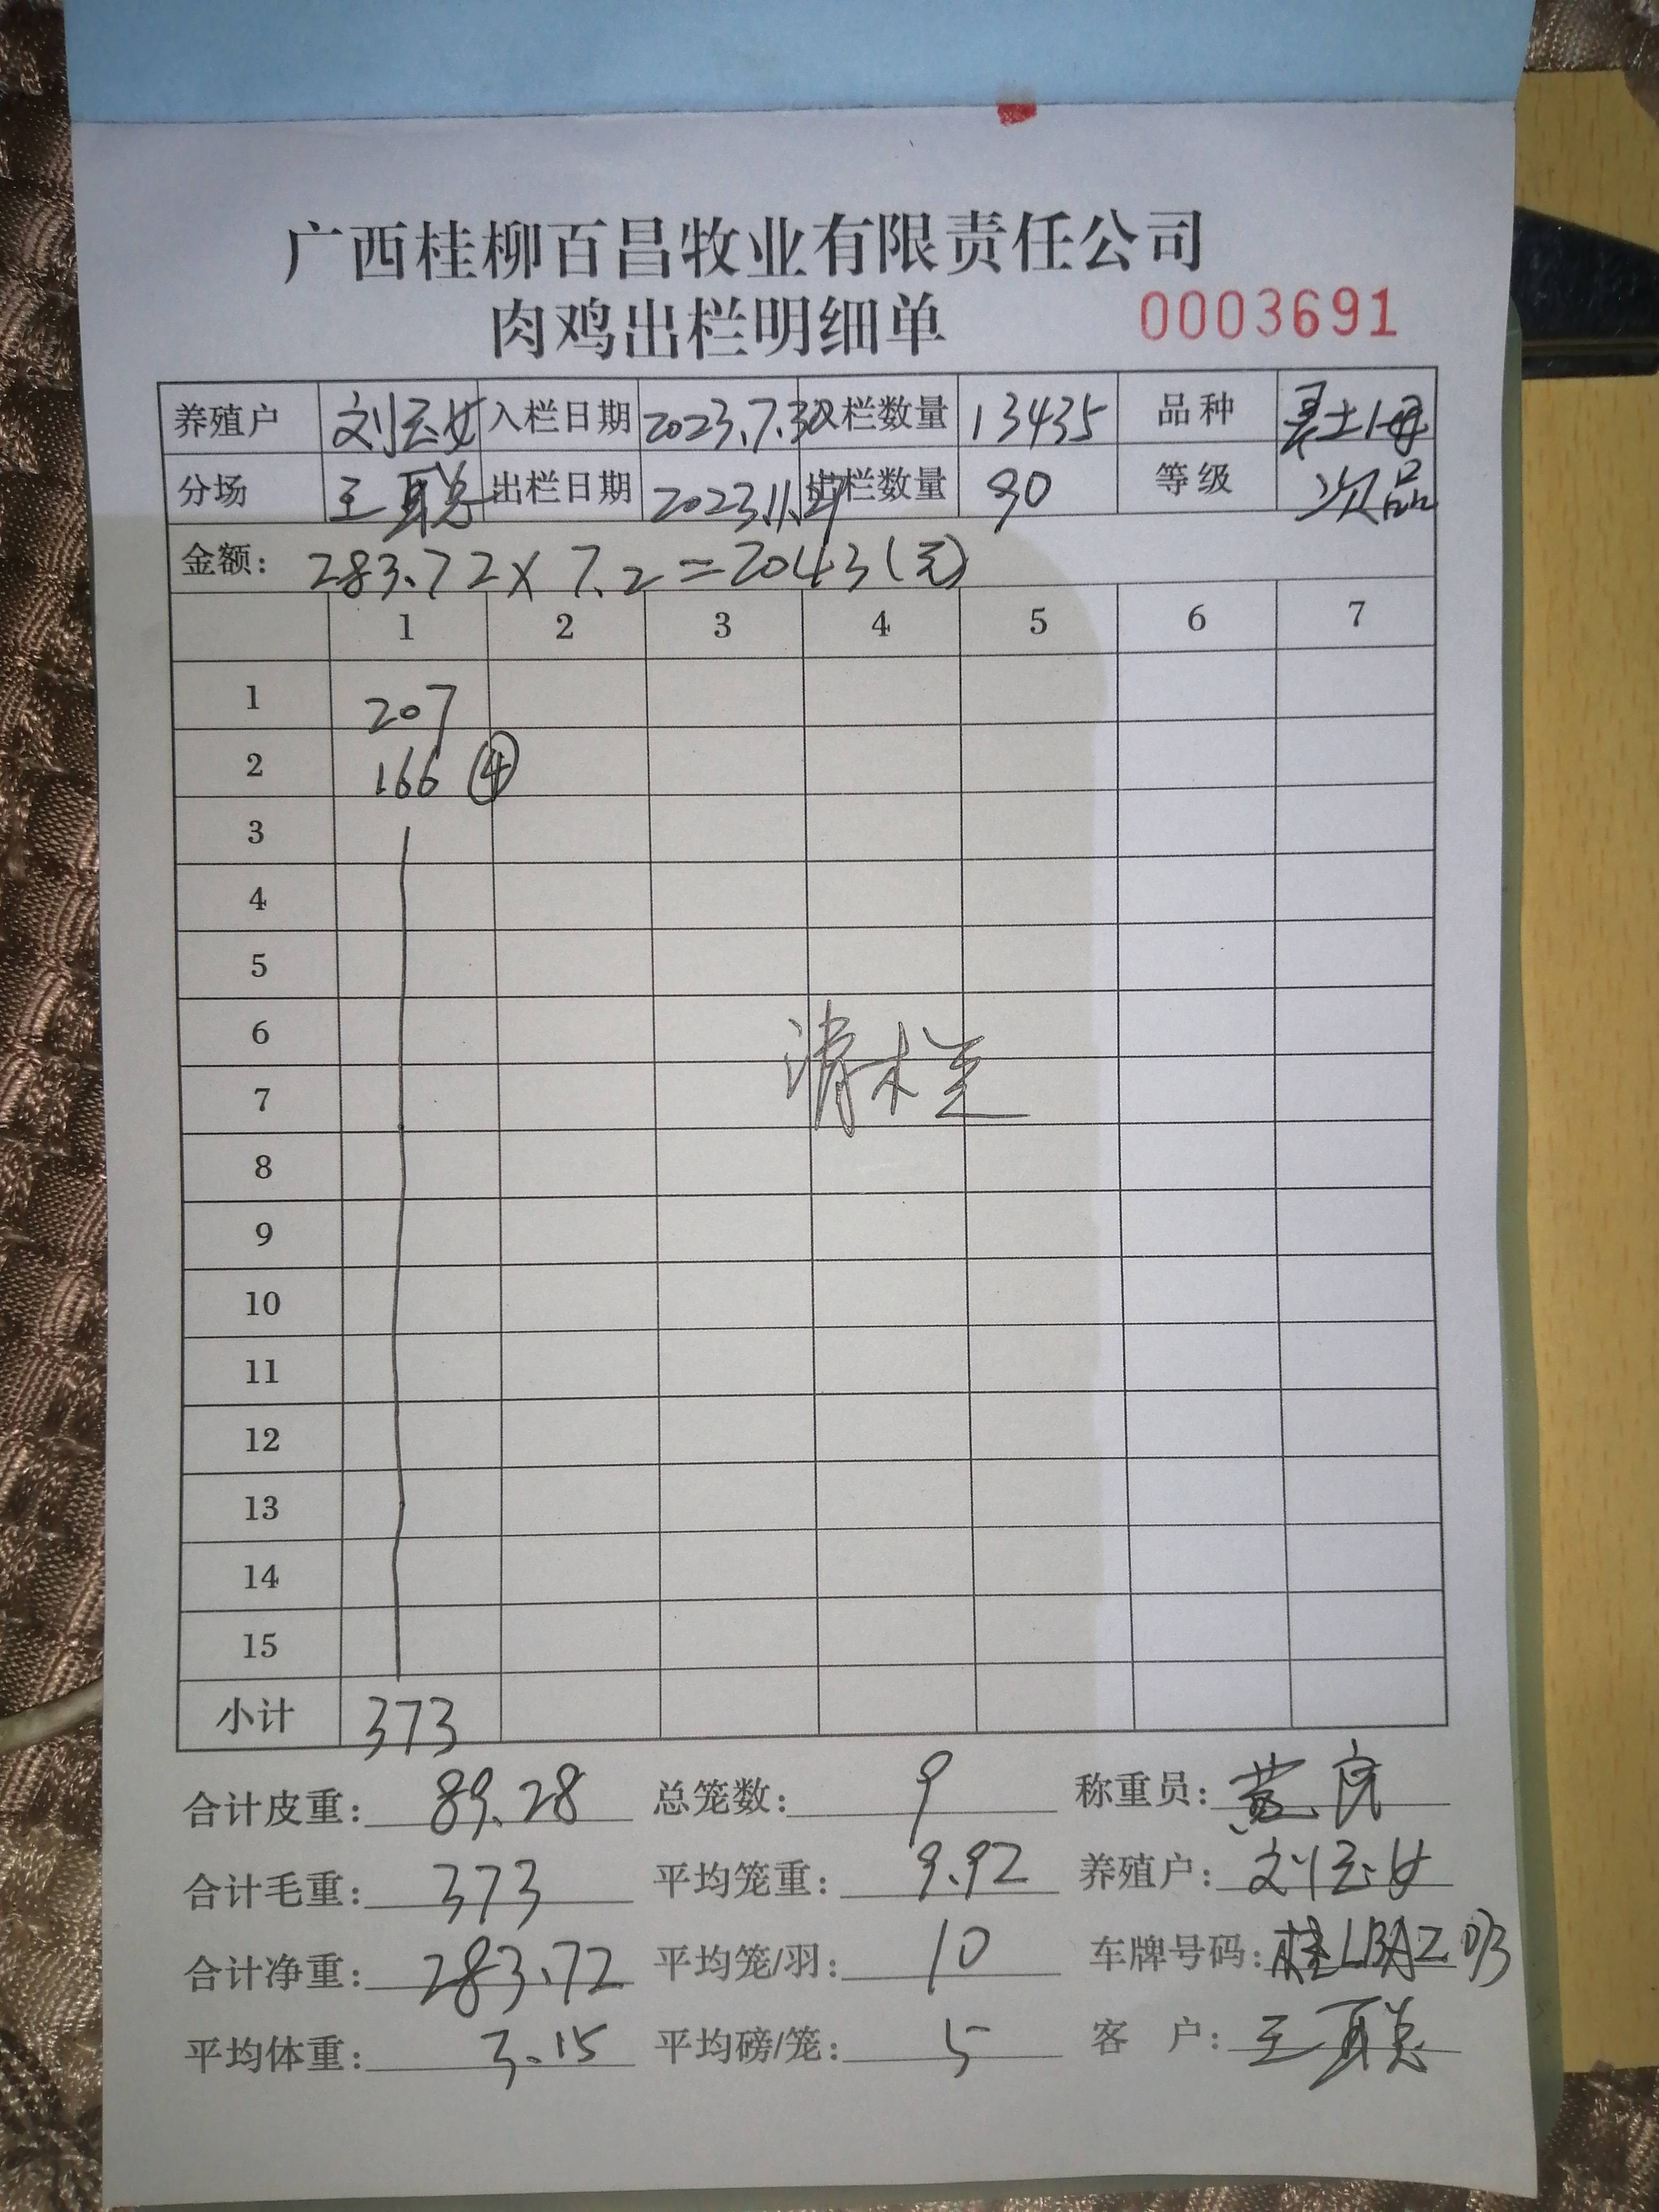 广西桂柳百昌牧业有限责任公司
肉鸡出栏明细单 0003691
养殖户 刘玉女 入栏日期 2023.7.30 入栏数量 13435 品种 土1母
分场 王聪 出栏日期 2023.11.21 出栏数量 90 等级 次品
金额: 283.72×7.2=2043(元)
1 2 3 4 5 6 7
1 207
2 166 ④
3
4
5
6
7 清栏
8
9
10
11
12
13
14
15
小计 373
合计皮重: 89.28 总笼数: 9 称重员: 黄
合计毛重: 373 平均笼重: 9.92 养殖户: 刘玉女
合计净重: 283.72 平均笼/羽: 10 车牌号码: 桂LBA
平均体重: 3.15 平均磅/笼: 5 客 户: 王聪